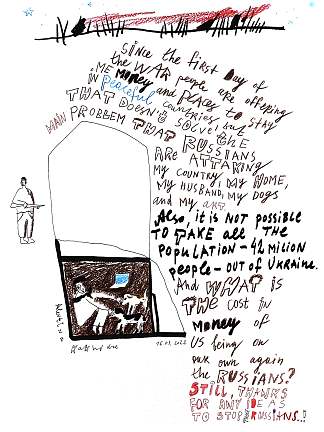 Since the first day of
the WAR people are offering
ME MONEY and PLACES to STAY
IN Peaceful countries, but
THAT DOESN'T SOLVE the
MAIN PROBBEM THAT
RUSSIANS
ARE ATTAKING
MY COUNTRY, MY HOME,
MY HUSBAND, MY DOGS
and MY ART
Also, it is NOT POSSIBLE
TO TAKE all THE
POPULATION - 42 MILION
people - OUT OF UKRAINE.
And WHAT IS
THE COST in
MONEY of
US being on
OUR OWN again
the RUSSIANS?
STILL, THANKS
FOR ANY IDEAS
TO STOP RUSSIANS..!